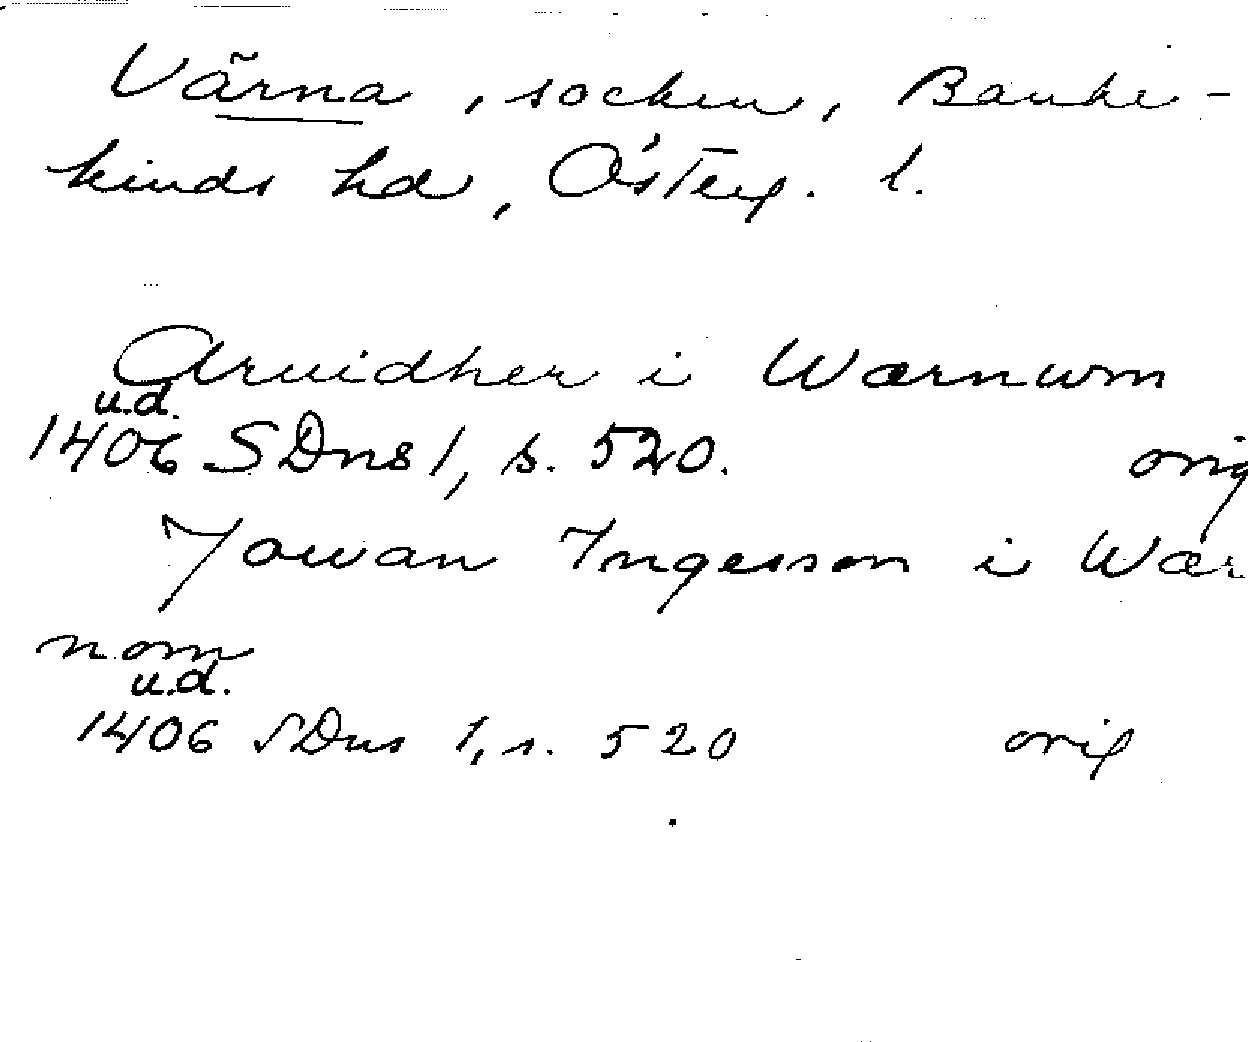 Värna, socken, Banke-
kinds hd, Österg. l.
Aruidher i Wærnwm
u.d.
1406 SDns 1, s. 520. orig
Jowan Ingesson i Wær
nom
u.d.
1406 SDns 1, s. 520 orig